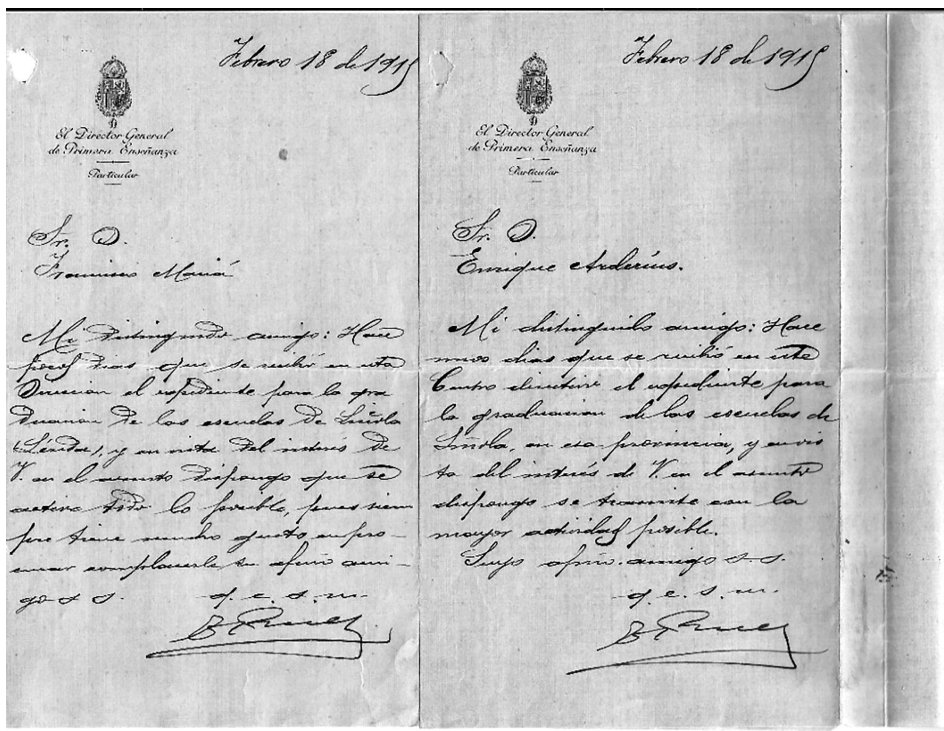 Febrero 18 de 1915
El Director General
de Primera Enseñanza
Particular
Sr. D.
Francisco Maciá
Mi distinguido amigo: Hace
pocos dias que se recibió en esta
Direccion el expediente para la gra
duacion de las escuelas de Liñola
(Lérida), y en vista del interés de
V. en el asunto dispongo que se
active todo lo posible, pues siem
pre tiene mucho gusto en pro-
curar complacerle su afmo ami-
go s s.
q. e. s. m.
Febrero 18 de 1915
El Director General
de Primera Enseñanza
Particular
Sr. D.
Enrique Arderíus.
Mi distinguido amigo: Hace
unos dias que se recibió en este
Centro directivo el expediente para
la graduacion de las escuelas de
Liñola, en esa provincia, y en vis
ta del interés de V. en el asunto
dispongo se tramite con la
mayor actividad posible.
Suyo afmo. amigo s. s.
q. e. s. m.